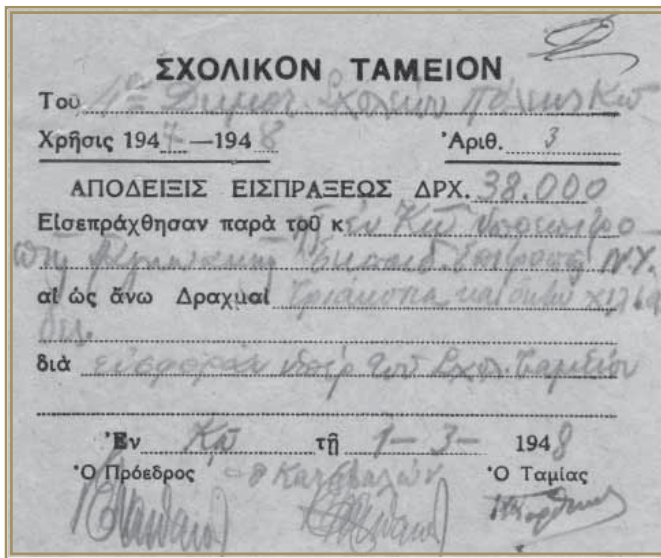 ΣΧΟΛΙΚΟΝ ΤΑΜΕΙΟΝ
Τοῦ 4ου Δημοτ. Σχολείου πόλεως Κῶ
Χρῆσις 1947—1948 Ἀριθ. 3
ΑΠΟΔΕΙΞΙΣ ΕΙΣΠΡΑΞΕΩΣ ΔΡΧ. 38.000
Εἰσεπράχθησαν παρὰ τοῦ κ. ἐν Κῶ ὑποεπιτρο-
πῆς Ἐκπαιδ. Ἐπιτροπῆς Ν.Υ.
αἱ ὡς ἄνω Δραχμαὶ τριάκοντα καὶ ὀκτὼ χιλιά
δες.
διὰ εἰσφορὰν ὑπὲρ τοῦ Σχολ. Ταμείου
Ἐν Κῷ τῇ 1-3- 1948
Ὁ Πρόεδρος ὁ Καταβαλὼν Ὁ Ταμίας